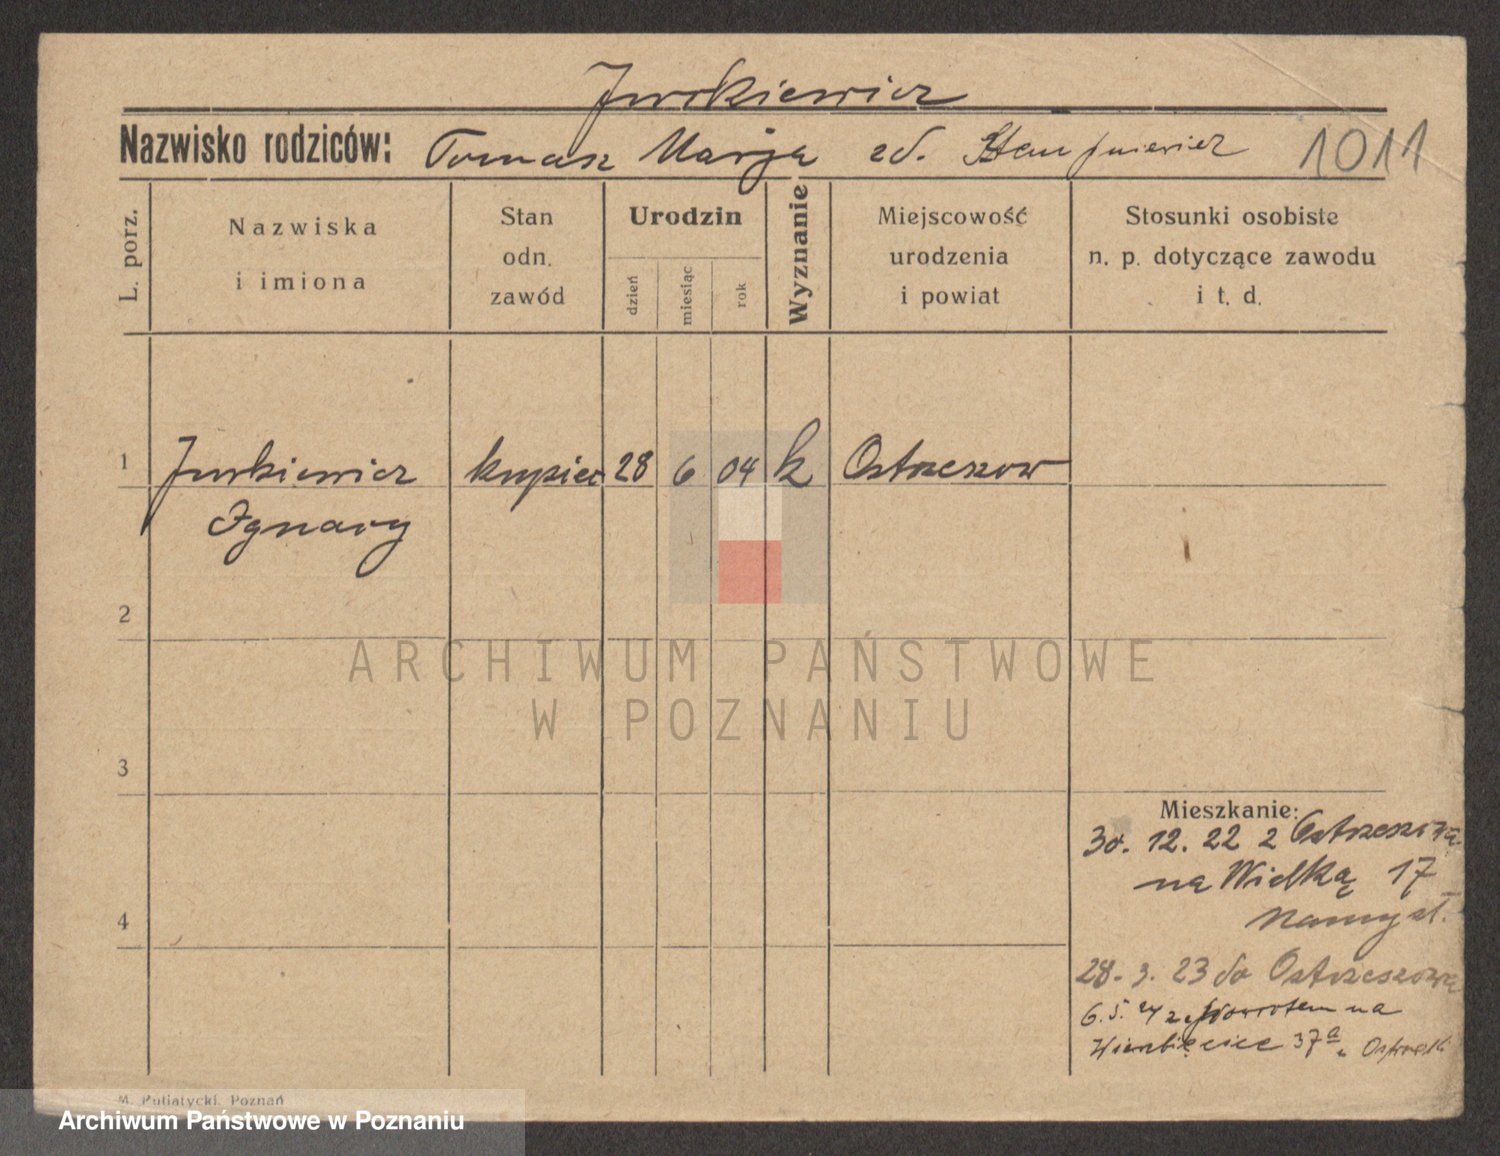 Jurkiewicz
Nazwisko rodziców: Tomasz Marja zd. 1011
L. porz.
Nazwiska
i imiona
Stan
odn.
zawód
Urodzin
dzień
miesiąc
rok
Wyznanie
Miejscowość
urodzenia
i powiat
Stosunki osobiste
n. p. dotyczące zawodu
i t. d.
1 Jurkiewicz kupiec 28 6 04 k Ostrzeszow
Ignacy
2
ARCHIWUM PAŃSTWOWE
W POZNANIU
3
Mieszkanie:
30. 12. 22 z Ostrzeszowa
na Wielką 17
4
28. 3. 23 do Ostrzeszowa
6. 5. 24 z powrotem na
Wierzbięcice 37a
M. Putiatycki, Poznań
Archiwum Państwowe w Poznaniu